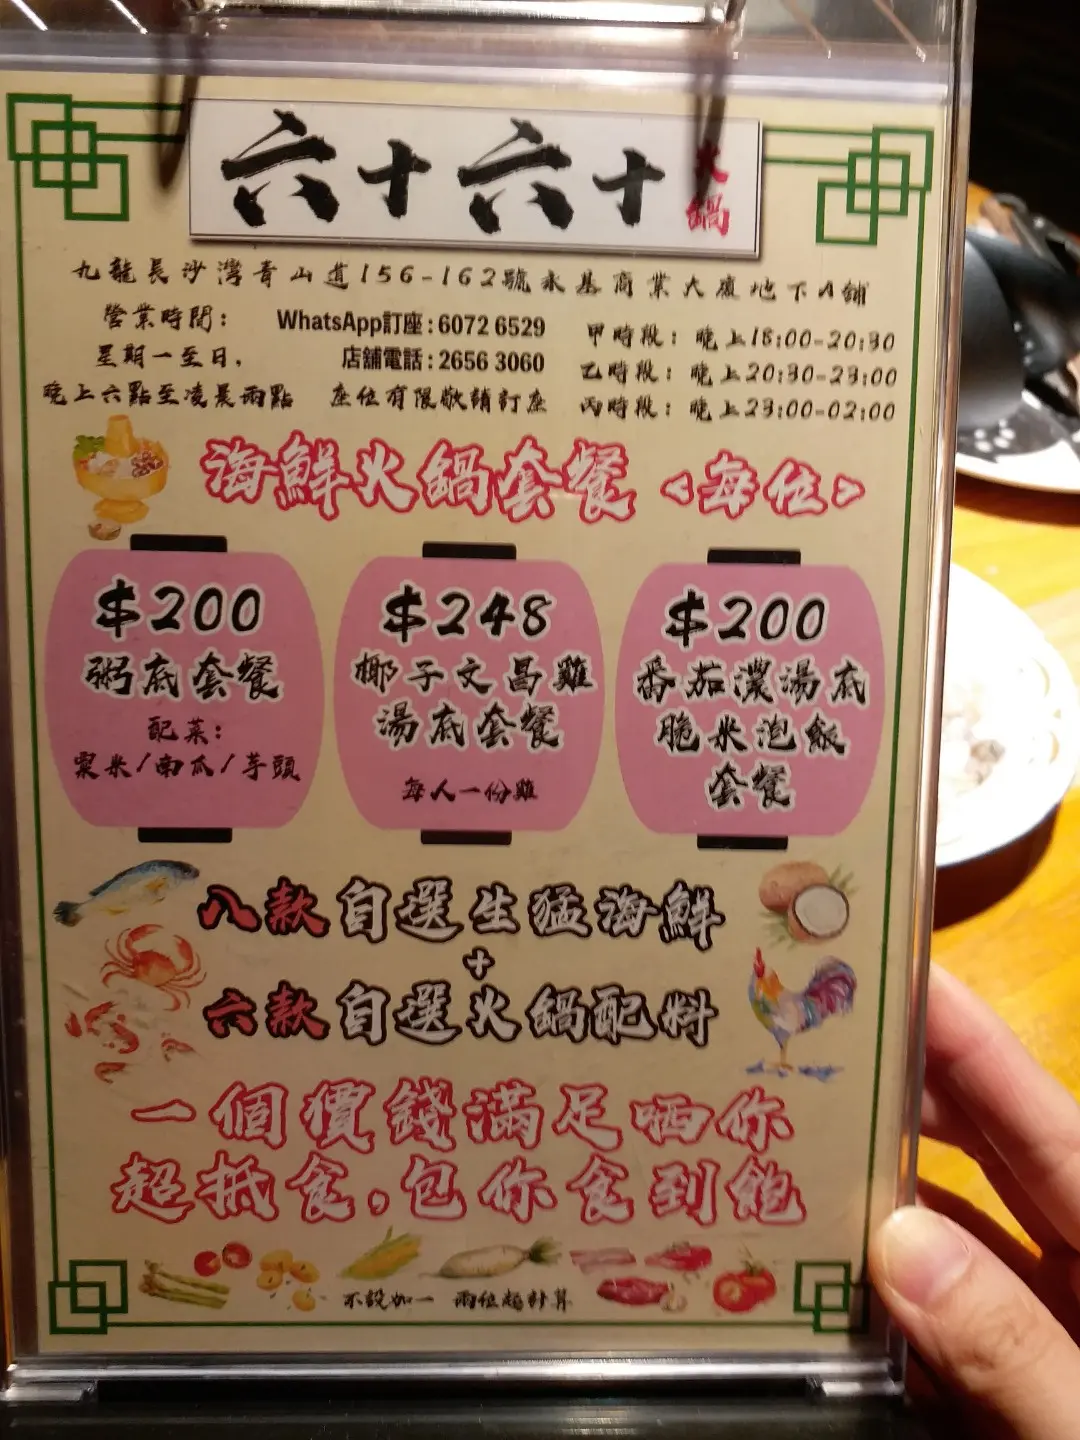 六十六十火鍋
九龍長沙灣青山道156-162號永基商業大廈地下A鋪
營業時間：
星期一至日，
晚上六點至凌晨兩點
WhatsApp訂座：6072 6529
店舖電話：2656 3060
座位有限敬請訂座
甲時段：晚上18:00-20:30
乙時段：晚上20:30-23:00
丙時段：晚上23:00-02:00
海鮮火鍋套餐<每位>
$200
粥底套餐
配菜：
粟米/南瓜/芋頭
$248
椰子文昌雞
湯底套餐
每人一份雞
$200
番茄濃湯底
脆米泡飯
套餐
八款自選生猛海鮮
+
六款自選火鍋配料
一個價錢滿足哂你
超抵食，包你食到飽
不設加一 兩位起計算